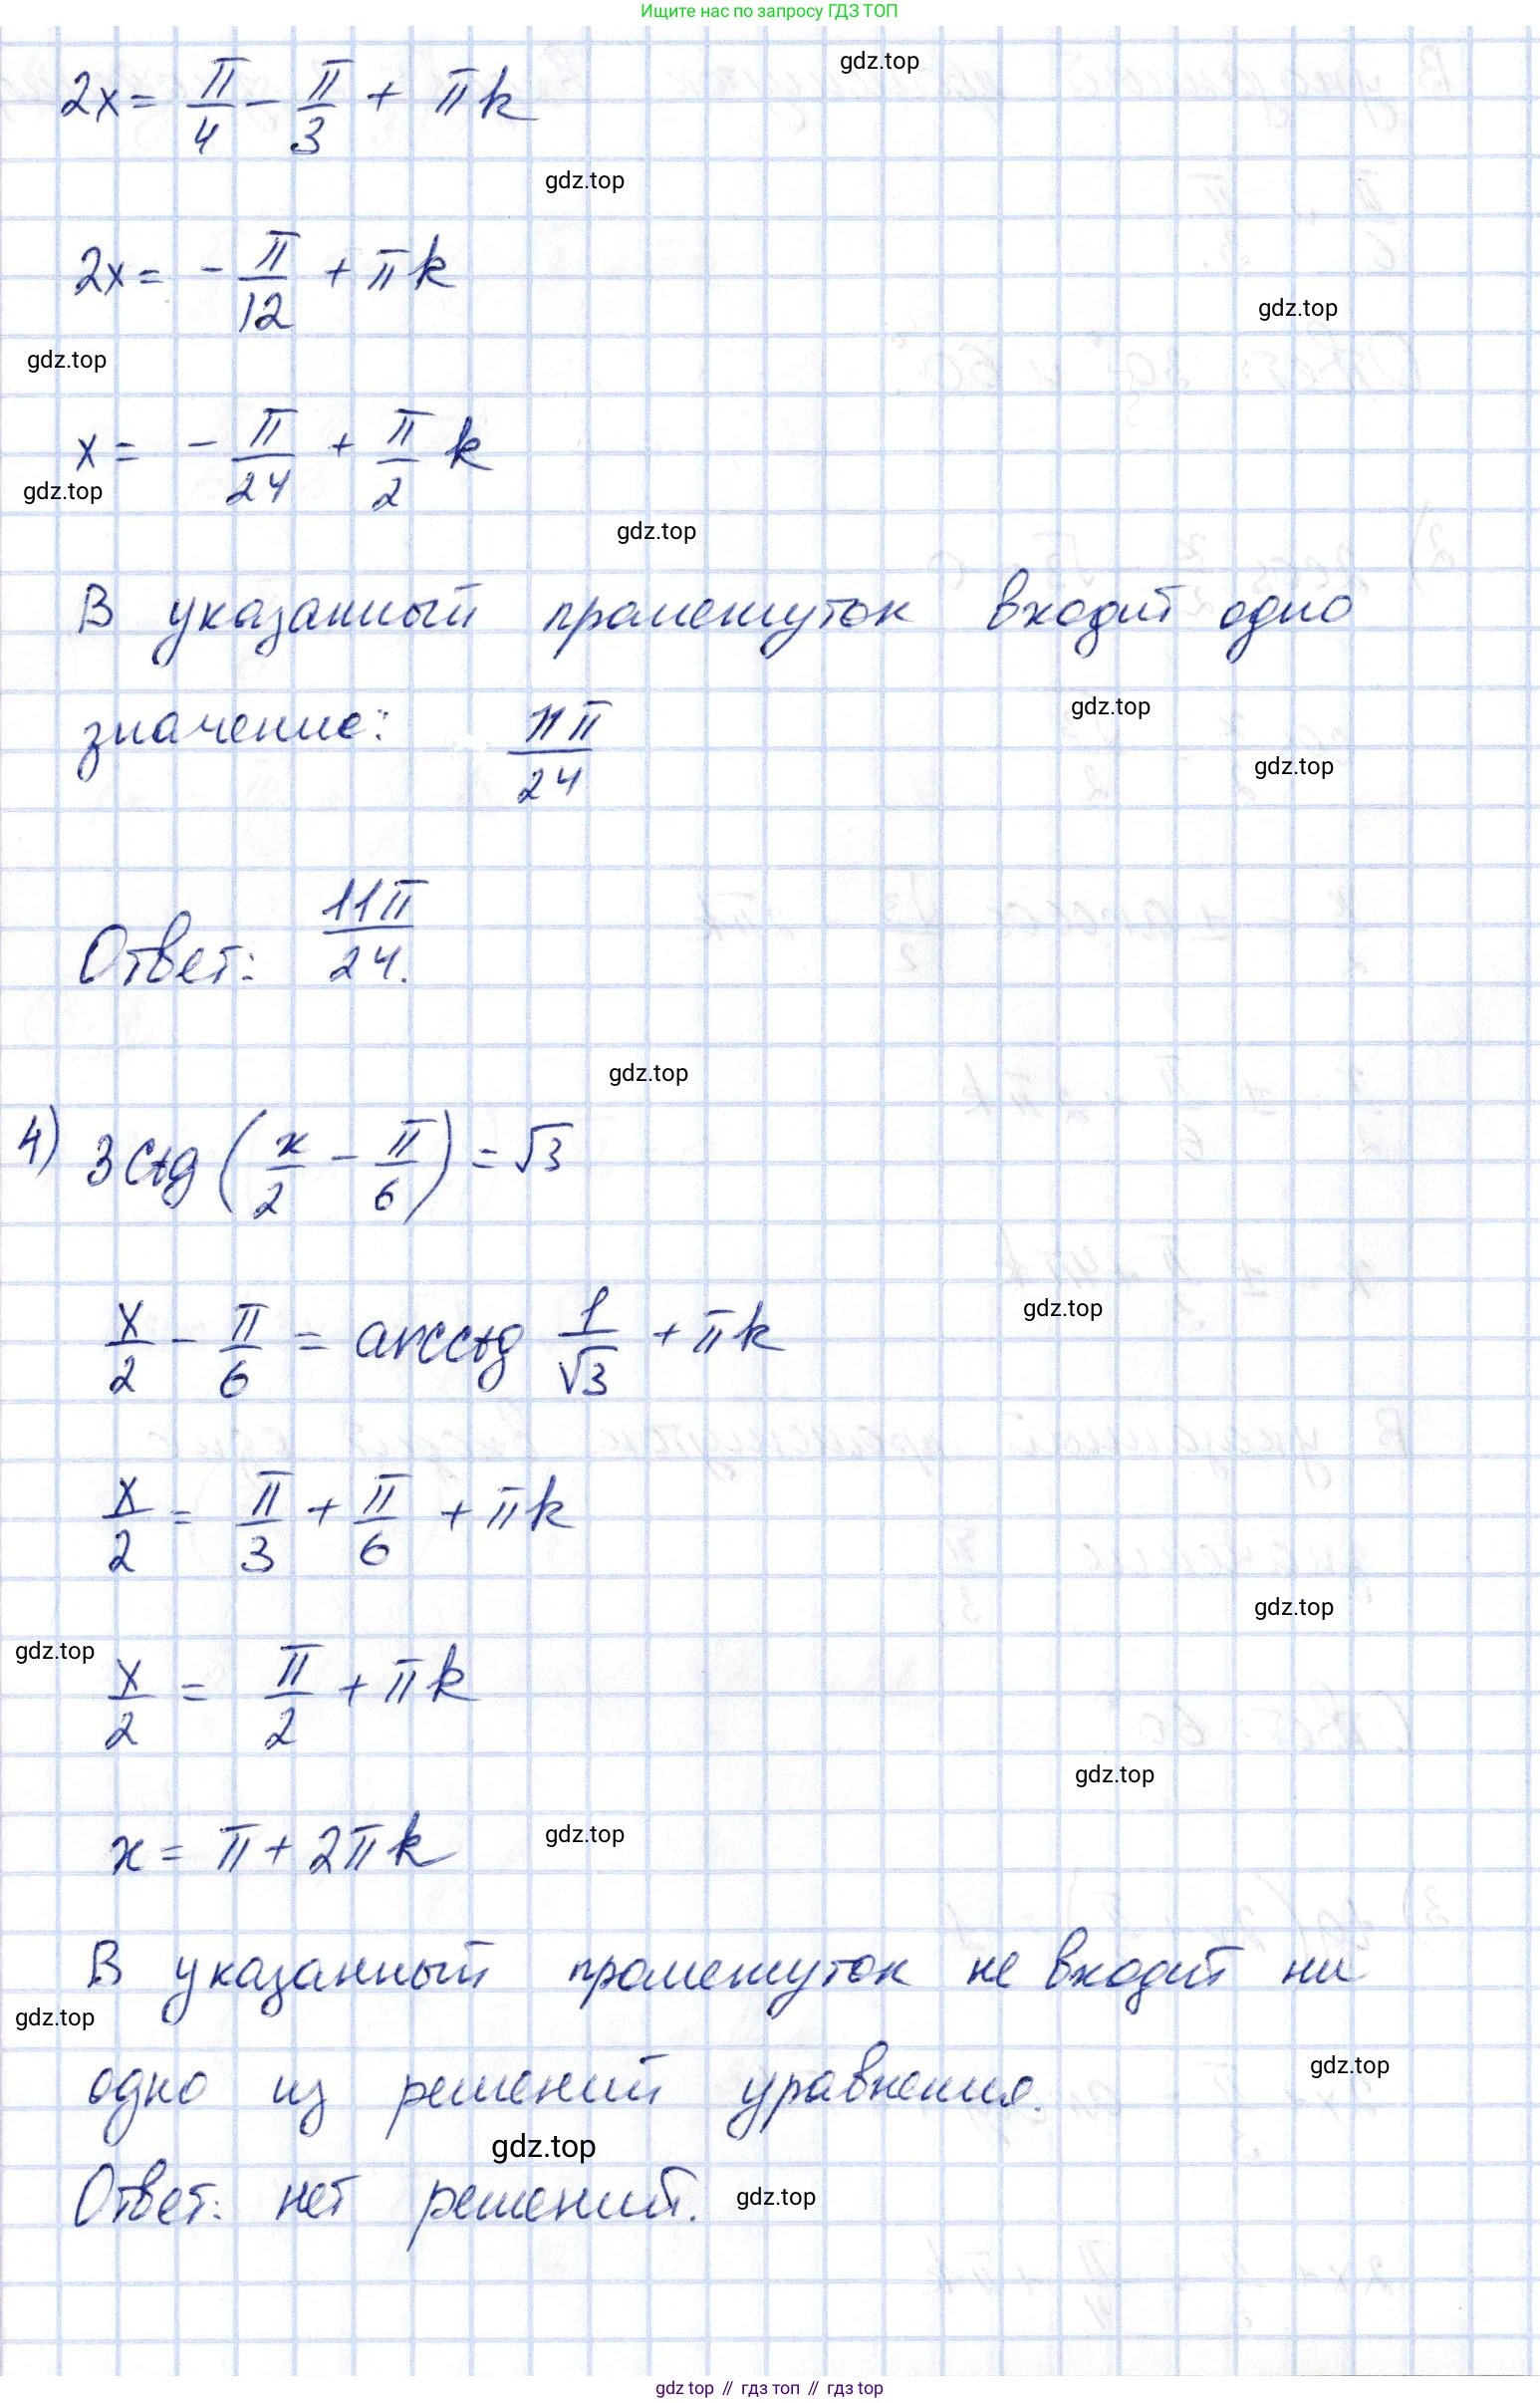 Ищите нас по запросу ГДЗ ТОП
gdz.top
2x = π/4 - π/3 + πk
gdz.top
2x = - π/12 + πk
gdz.top
gdz.top
x = - π/24 + π/2 k
gdz.top
gdz.top
В указанный промежуток входит одно
значение: 11π/24
gdz.top
gdz.top
Ответ: 11π/24.
gdz.top
4) 3 ctg (x/2 - π/6) = √3
gdz.top
x/2 - π/6 = arcctg 1/√3 + πk
x/2 = π/3 + π/6 + πk
gdz.top
gdz.top
x/2 = π/2 + πk
gdz.top
x = π + 2πk
gdz.top
В указанный промежуток не входит ни
gdz.top
одно из решений уравнения.
gdz.top
gdz.top
Ответ: нет решений.
gdz.top
gdz.top // гдз топ // гдз.top